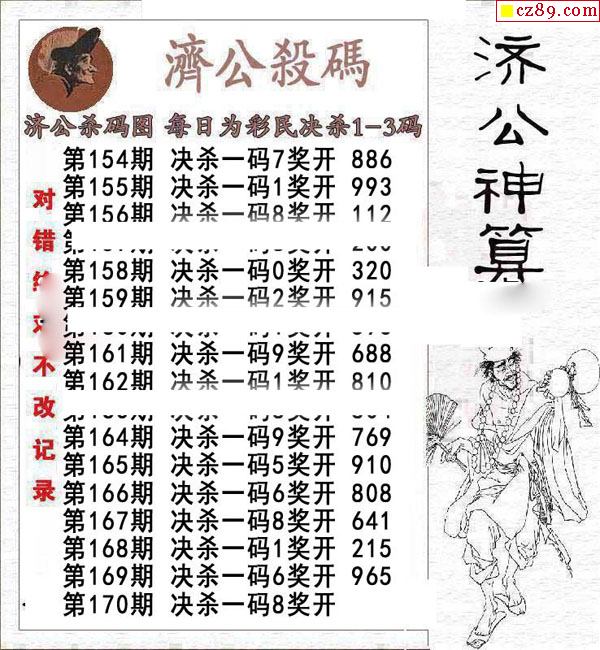 cz89.com
濟公殺碼
济公杀码图 每日为彩民决杀1-3码
第154期 决杀一码7奖开 886
第155期 决杀一码1奖开 993
第156期 决杀一码8奖开 112
第158期 决杀一码0奖开 320
第159期 决杀一码2奖开 915
第161期 决杀一码9奖开 688
第162期 决杀一码1奖开 810
第164期 决杀一码9奖开 769
第165期 决杀一码5奖开 910
第166期 决杀一码6奖开 808
第167期 决杀一码8奖开 641
第168期 决杀一码1奖开 215
第169期 决杀一码6奖开 965
第170期 决杀一码8奖开
对错 不改记录
济公神算